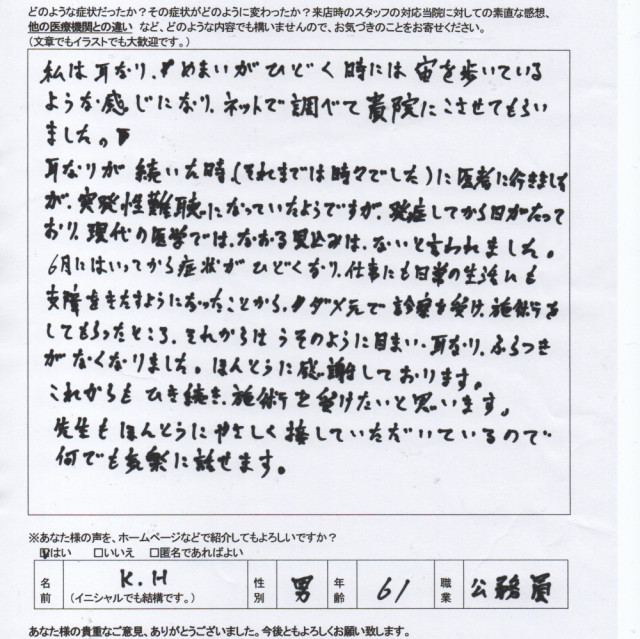 どのような症状だったか？その症状がどのように変わったか？来店時のスタッフの対応当院に対しての素直な感想、
他の医療機関との違い など、どのような内容でも構いませんので、お気づきのことをお寄せください。
（文章でもイラストでも大歓迎です。）
私は耳なり、めまいがひどく時には宙を歩いている
ような感じになり、ネットで調べて貴院にこさせてもらい
ました。
耳なりが続いた時、（それまでは時々でした）に医者に行きました
が、突発性難聴になっていたようですが、発症してから日がたって
おり、現代の医学では、なおる見込みは、ないと言われました。
6月にはいってから症状がひどくなり、仕事にも日常の生活にも
支障をきたすようになったことから、ダメ元で診察を受け、施術を
してもらったところ、それからはうそのように目まい・耳なり、ふらつき
がなくなりました。ほんとうに感謝しております。
これからもひき続き、施術を受けたいと思います。
先生もほんとうにやさしく接していただいているので
何でも気楽に話せます。
※あなた様の声を、ホームページなどで紹介してもよろしいですか？
☑はい □いいえ □匿名であればよい
名前 K.H （イニシャルでも結構です。） 性別 男 年齢 61 職業 公務員
あなた様の貴重なご意見、ありがとうございました。今後ともよろしくお願い致します。